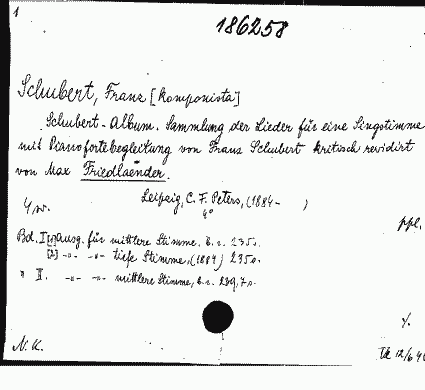 1
186258
Schubert, Franz [komponista]
Schubert-Album. Sammlung der Lieder für eine Singstimme
mit Pianofortebegleitung von Franz Schubert kritisch revidirt
von Max Friedlaender.
Leipzig, C. F. Peters, (1884- )
4°
ppl.
Bd. I [1] Ausg. für mittlere Stimme.
[2] -"- -"- tiefe Stimme, (1884)
" II. -"- -"- mittlere Stimme,
N. K.